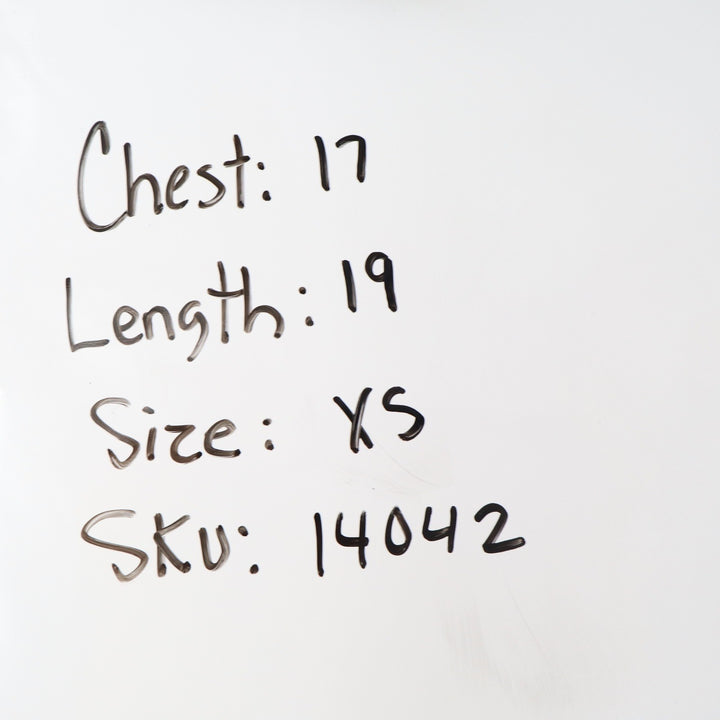 Chest: 17
Length: 19
Size: XS
SKU: 14042